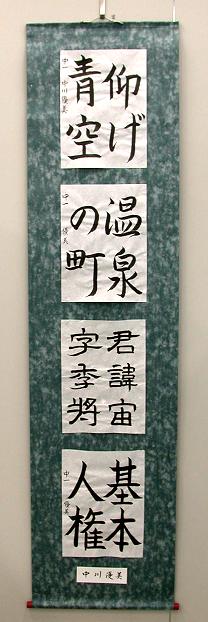 仰げ
青空
中一 中川優美
温泉
の町
中一 優美
君諱宙
字季将
基本
人権
中一 優美
中川優美